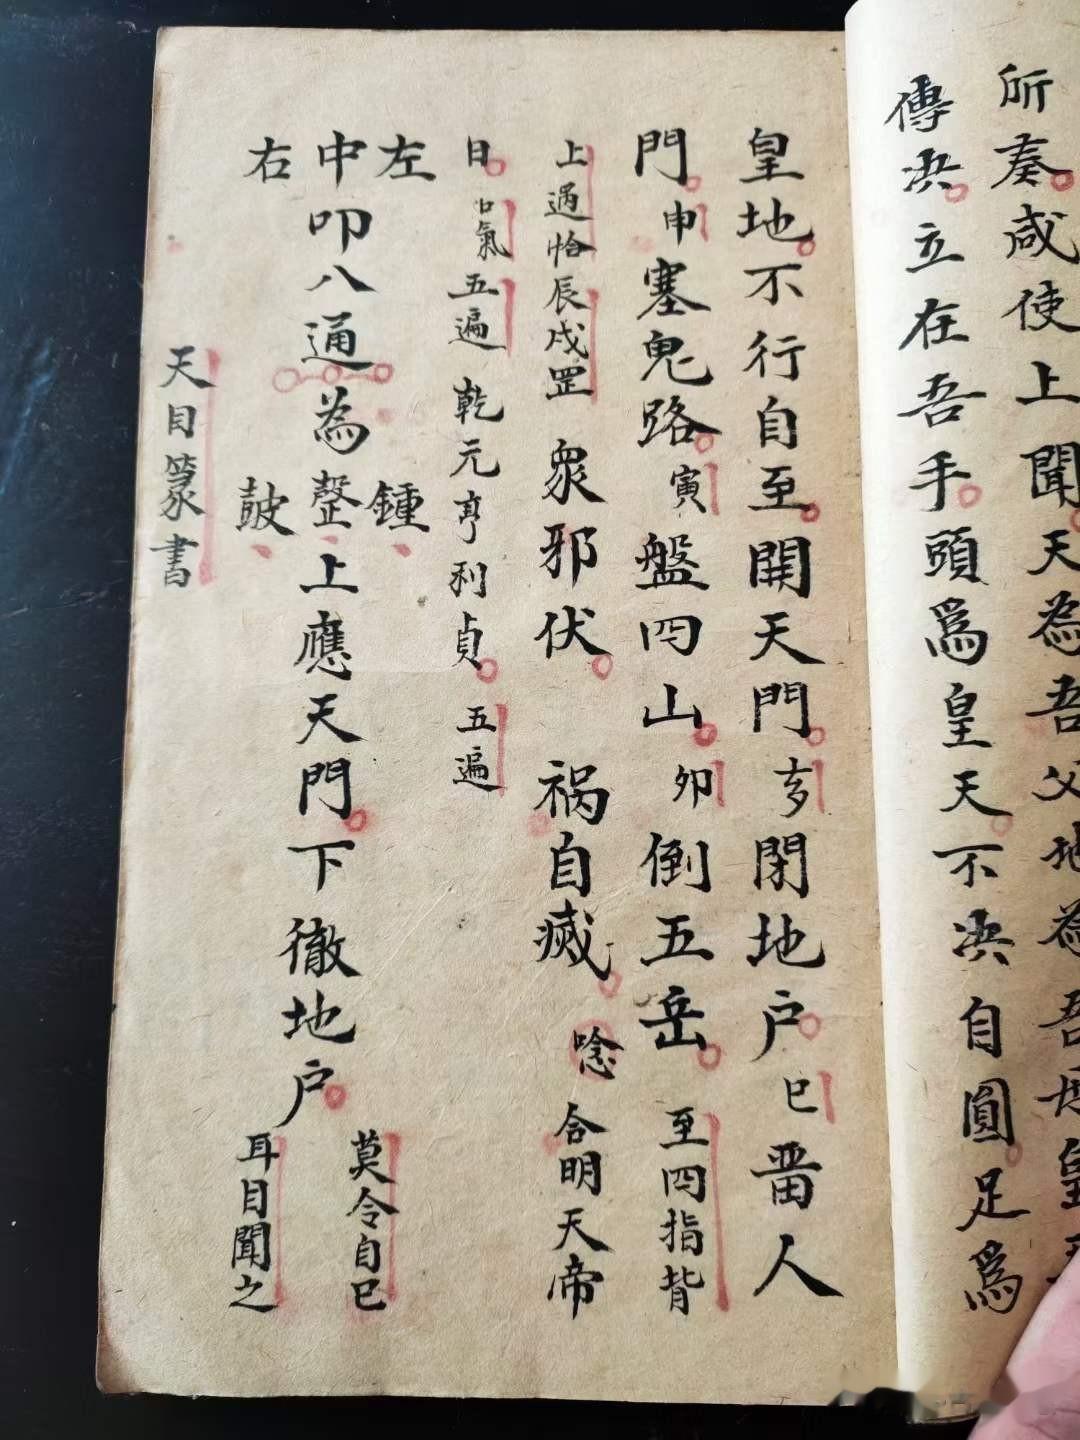 所奏咸使上聞天為吾父地為吾母皇天
傳決立在吾手頭爲皇天不決自圓足爲
皇地不行自至開天門亥閉地户巳畱人
門申塞鬼路寅盤四山卯倒五岳至四指背
上過恰辰戌罡衆邪伏祸自滅唸合明天帝
日口氣五遍乾元亨利貞五遍
左鍾莫令自巳
中叩八通為聲上應天門下徹地户
右皷耳目聞之
天目篆書